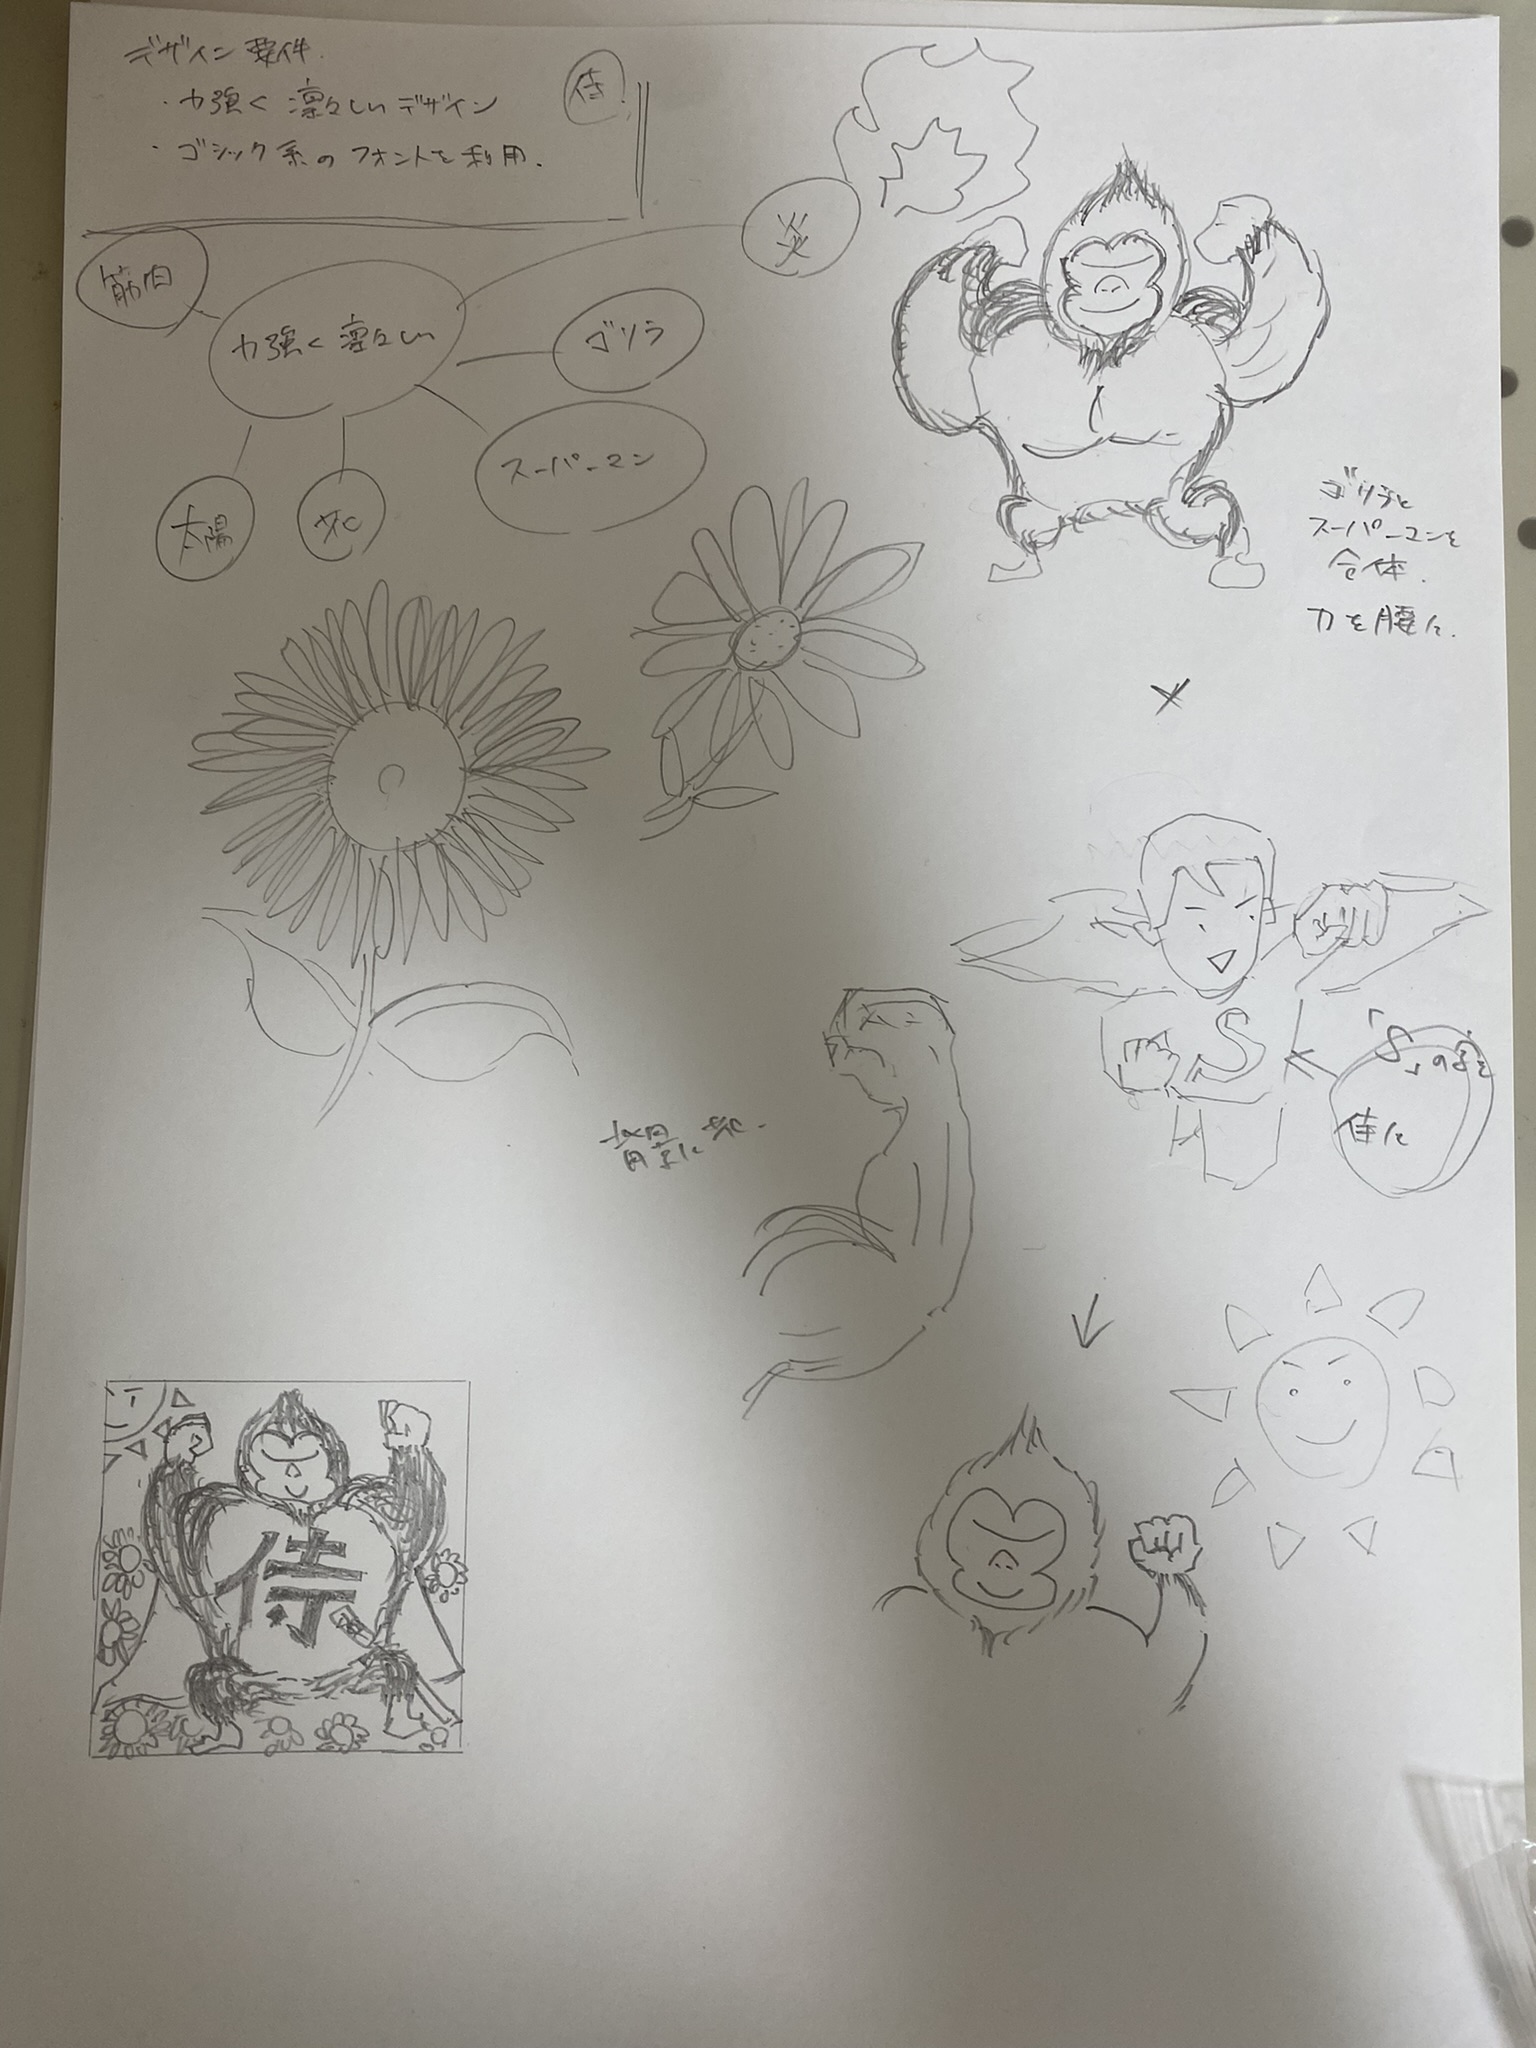 デザイン要件.
・力強く凛々しいデザイン
・ゴシック系のフォントを利用.
侍
炎
筋肉
力強く凛々しい
ゴリラ
スーパーマン
太陽
花
ゴリラと
スーパーマンを
合体.
刀を腰に.
×
S
「S」の字を
侍に
背景に花.
侍